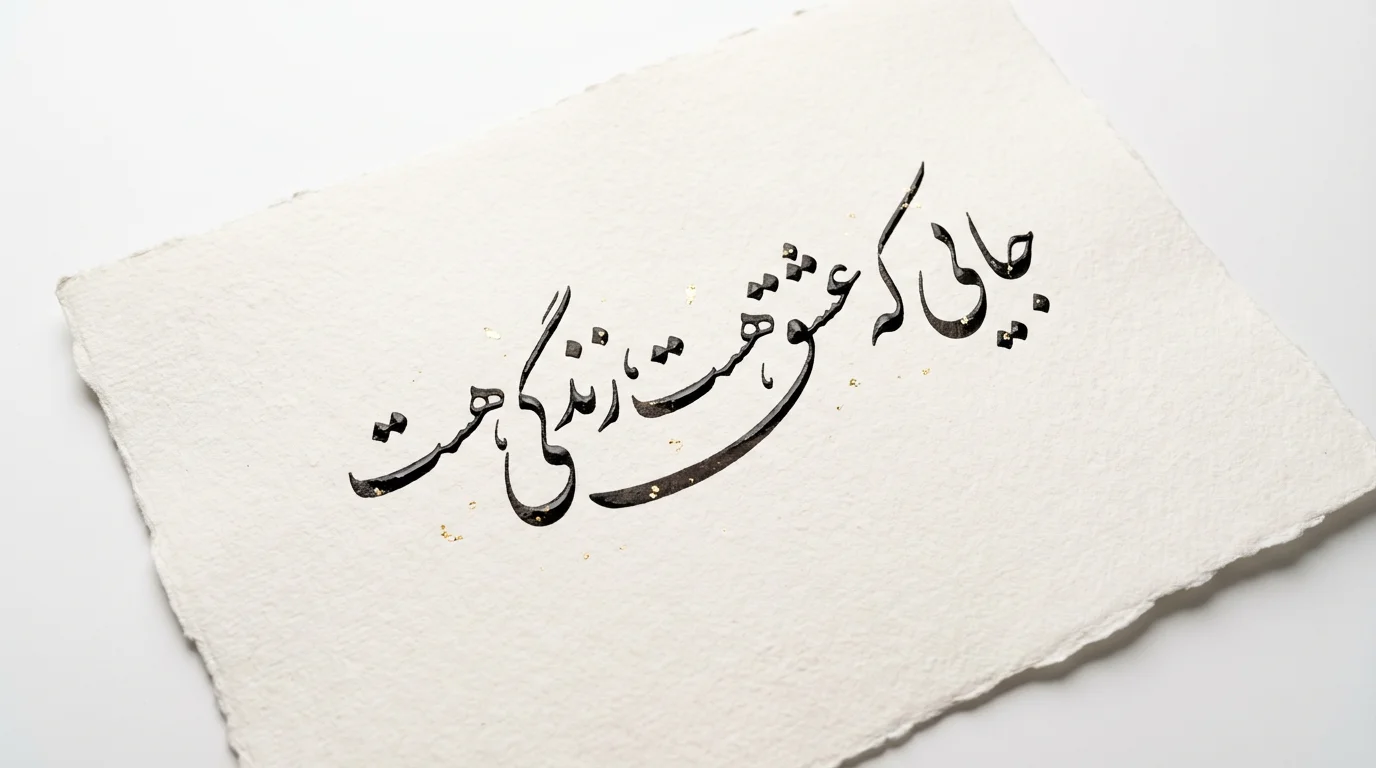 جایی که عشق هست، زندگی هست